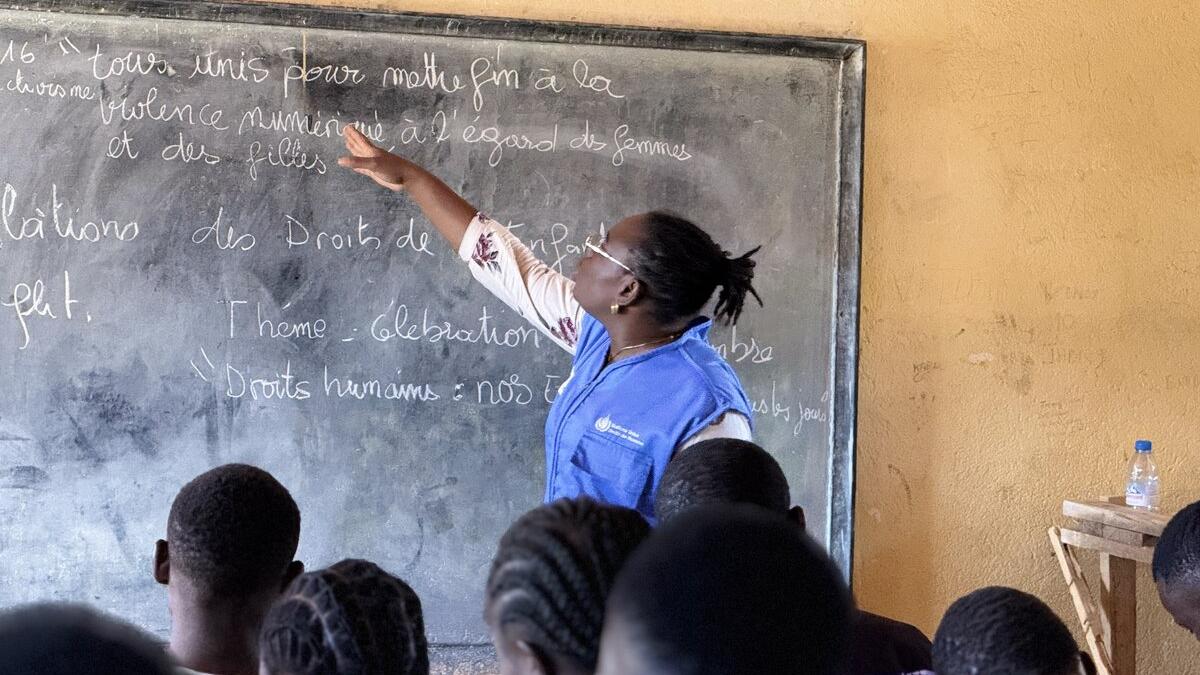 16 " tous unis pour mettre fin à la
violence numérique à l'égard des femmes
et des filles
des Droits de Enfan
Théme - Célebration mbre
" Droits humains : nos us les jours